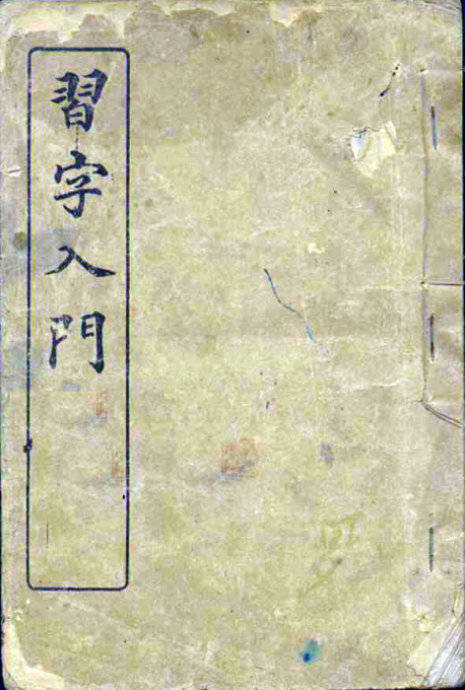 習字入門